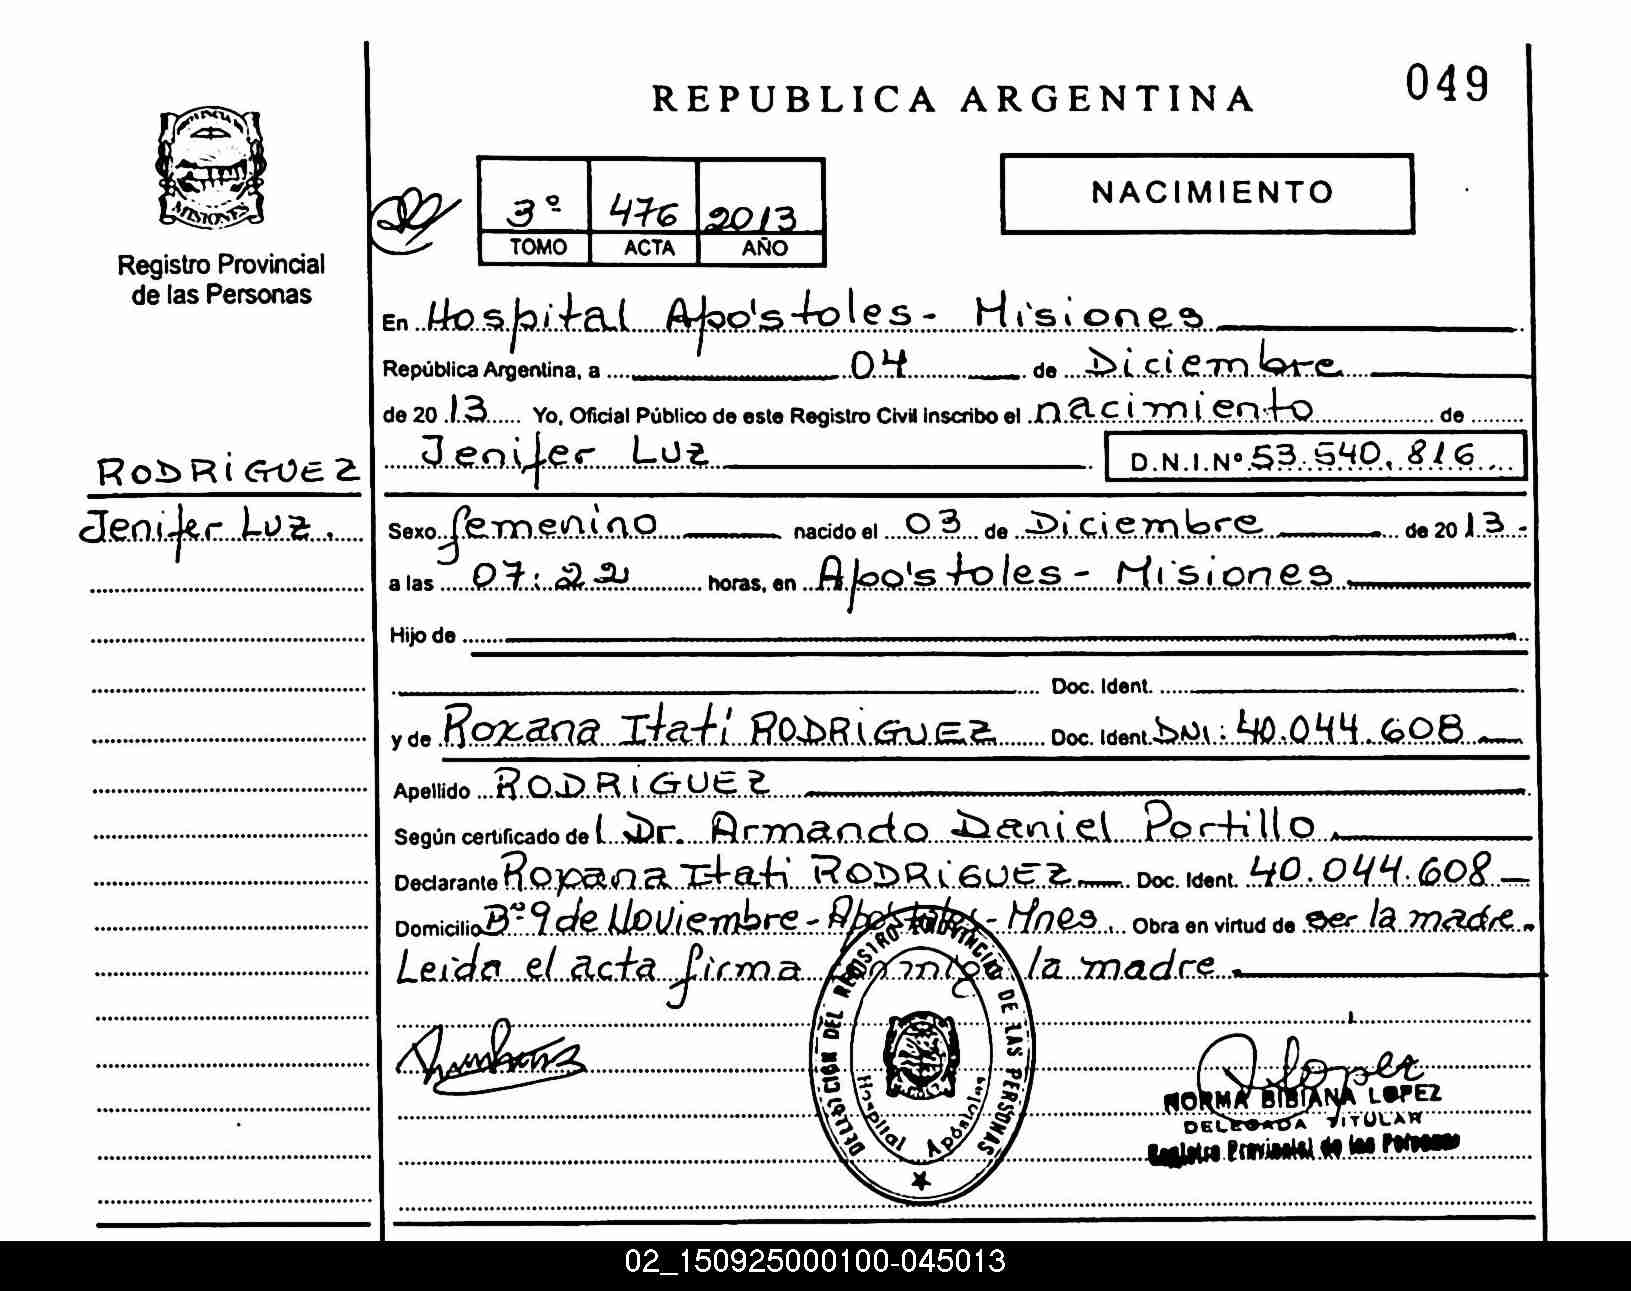 049
REPUBLICA ARGENTINA
NACIMIENTO
PROVINCIA DE
MISIONES
Registro Provincial
de las Personas
3º 476 2013
TOMO ACTA AÑO
En Hospital Apóstoles - Misiones
República Argentina, a 04 de Diciembre
de 2013 Yo, Oficial Público de este Registro Civil inscribo el nacimiento de
Jenifer Luz D.N.I.Nº 53.540.816
RODRIGUEZ
Jenifer Luz.
Sexo femenino nacido el 03 de Diciembre de 2013.-
a las 07:22 horas, en Apóstoles - Misiones
Hijo de
Doc. Ident.
y de Roxana Itatí RODRIGUEZ Doc. Ident. DNI: 40.044.608
Apellido RODRIGUEZ
Según certificado del Dr. Armando Daniel Portillo
Declarante Roxana Itati RODRIGUEZ Doc. Ident. 40.044.608
Domicilio Bº 9 de Noviembre - Apóstoles - Mnes Obra en virtud de ser la madre.
Leida el acta firma conmigo la madre.
DELEGACION DEL REGISTRO PROVINCIAL DE LAS PERSONAS
Hospital Apóstoles
NORMA BIBIANA LOPEZ
DELEGADA TITULAR
Registro Provincial de las Personas
02_150925000100-045013